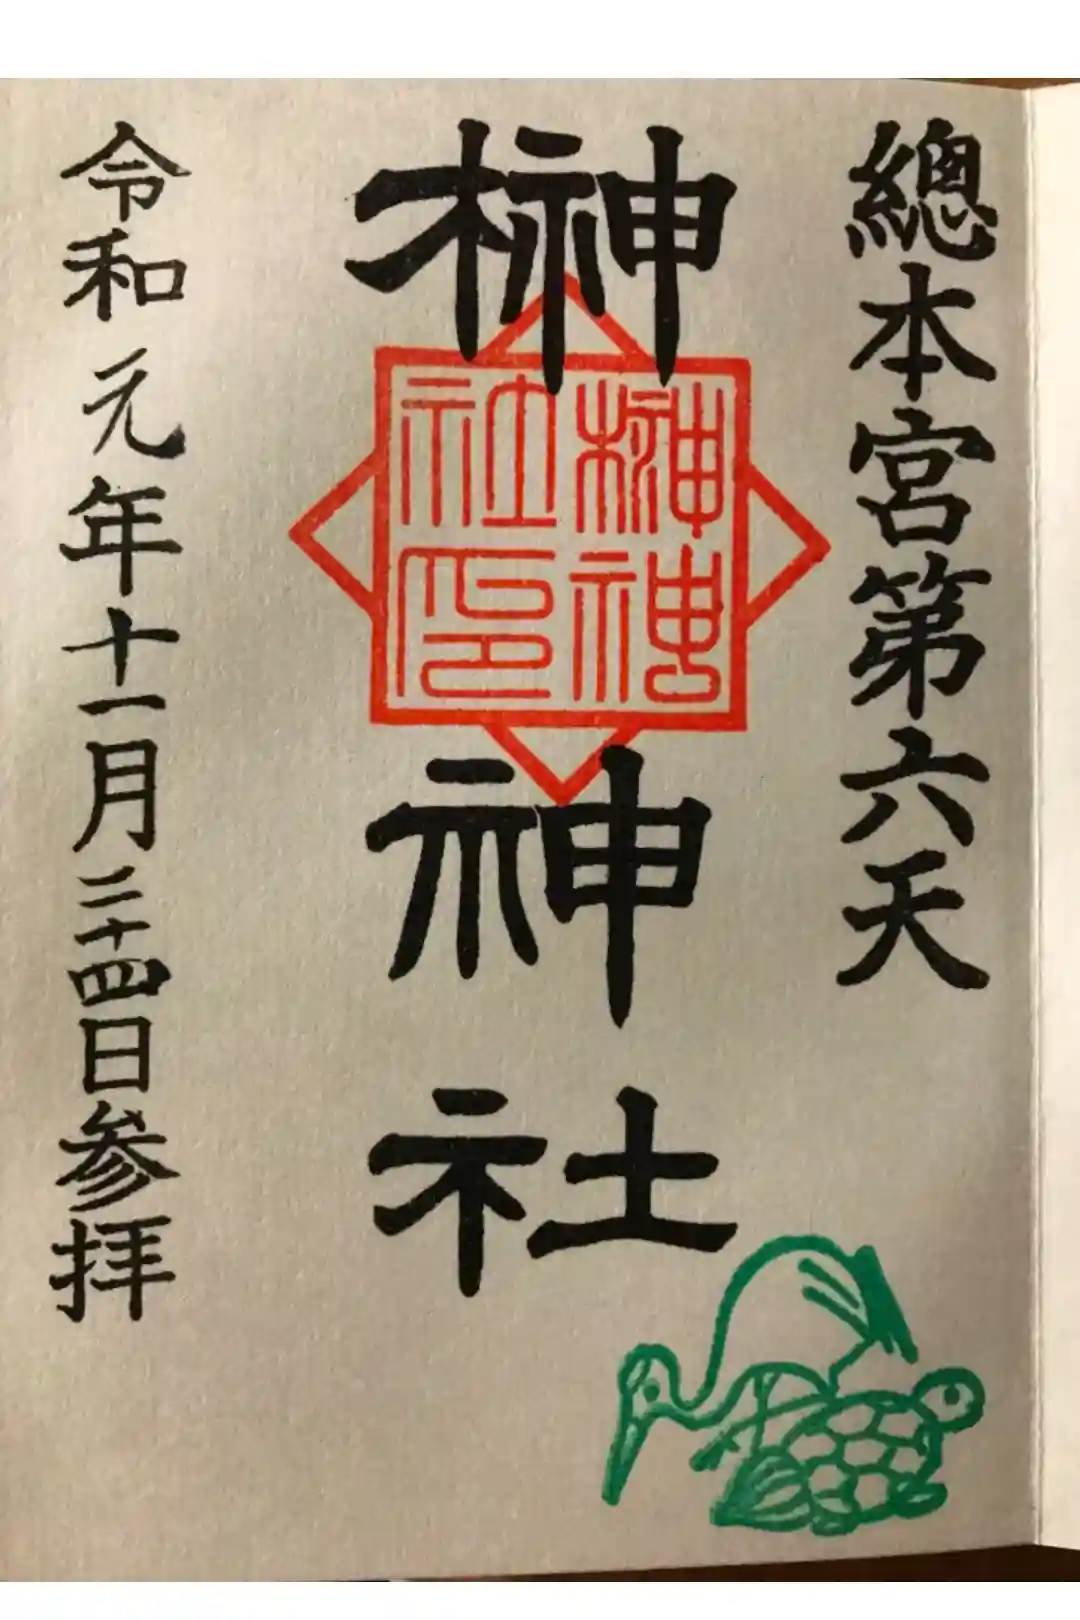 總本宮第六天
榊神社
榊神社印
令和元年十一月二十四日参拝